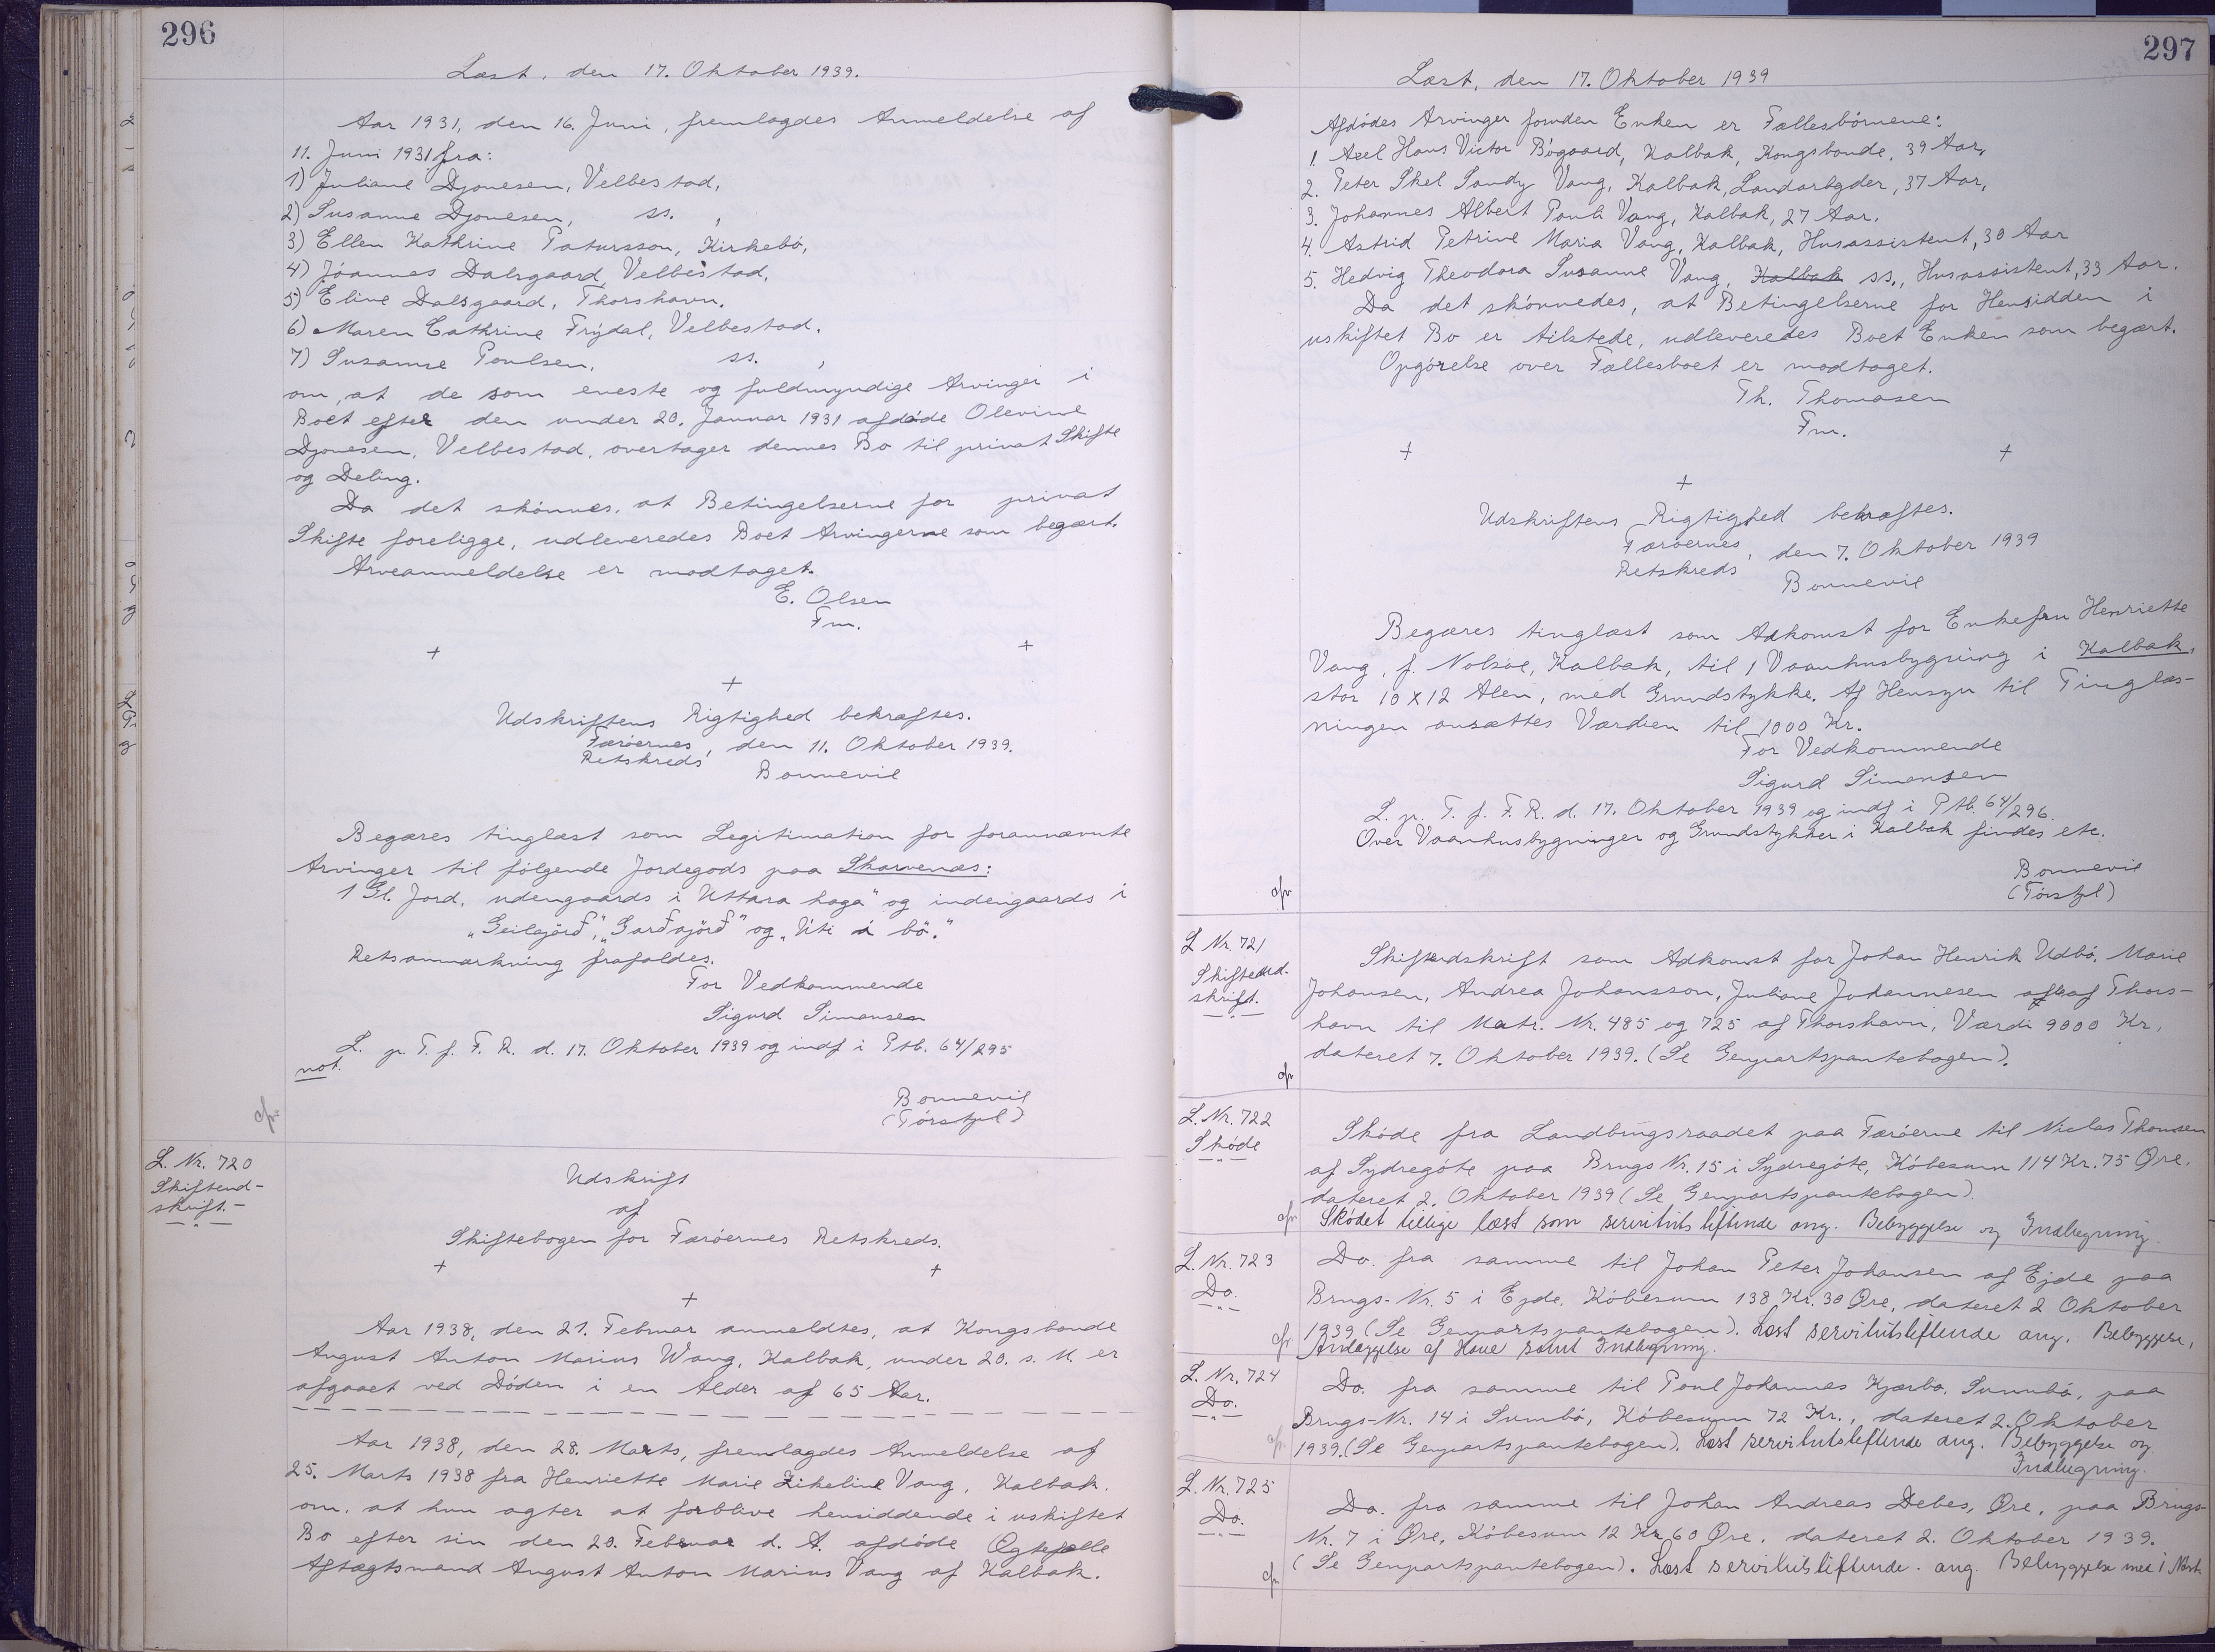 296
Læst, den 17. Oktober 1939.
Aar 1931, den 16. Juni, fremlagdes Anmeldelse af
11. Juni 1931 fra:
1) Juliane Djonesen, Velbestad,
2) Susanne Djonesen, ss. ,
3) Ellen Kathrine Patursson, Kirkebö,
4) Jóannes Dalsgaard, Velbestad,
5) Eline Dalsgaard, Thorshavn,
6) Maren Cathrine Frýdal, Velbestad.
7) Susanne Poulsen, ss. ,
om, at de som eneste og fuldmyndige Arvinger i
Boet efter den under 20. Januar 1931 afdøde Olevine
Djonesen, Velbestad, overtager dennes Bo til privat Skifte
og Deling.
Da det skönnes, at Betingelserne for privat
Skifte foreligge, udleveredes Boet Arvingerne som begært.
Arveanmeldelse er modtaget.
E. Olsen
Fm.
+ +
+
Udskriftens Rigtighed bekræftes.
Færöernes Retskreds, den 11. Oktober 1939.
Bonnevie
Begæres tinglæst som Legitimation for forannævnte
Arvinger til fölgende Jordegods paa Skarvenæs:
1 Gl. Jord, udengaards i "Uttara haga" og indengaards i
"Geilajörð", "Garðajörð" og "Úti á bö."
Retsanmærkning frafaldes.
For Vedkommende
Sigurd Simonsen
L. p. T. f. F. R. d. 17. Oktober 1939 og indf i Ptb. 64/295
not.
Bonnevie
cfr.
L. Nr. 720
Skifteud-
skrift.-
Udskrift
af
Skiftebogen for Færöernes Retskreds.
+ +
+
Aar 1938, den 21. Februar anmeldtes, at Kongsbonde
August Anton Marius Wang, Kalbak, under 20. s. M. er
afgaaet ved Döden i en Alder af 65 Aar.
Aar 1938, den 28. Marts, fremlagdes Anmeldelse af
25. Marts 1938 fra Henriette Marie Zikeline Vang, Kalbak.
om, at hun agter at forblive hensiddende i uskiftet
Bo efter sin den 20. Februar d. A. afdöde Ægtefælle
Aftægtsmand August Anton Marius Vang af Kalbak.
297
Læst, den 17. Oktober 1939
Afdödes Arvinger foruden Enken er Fællesbörnene:
1. Axel Hans Victor Bögaard, Kalbak, Kongsbonde, 39 Aar,
2. Peter Skel Sandy Vang, Kalbak, Landarbejder, 37 Aar,
3. Johannes Albert Pouli Vang, Kalbak, 27 Aar.
4. Astrid Petrine Maria Vang, Kalbak, Husassistent, 30 Aar
5. Hedvig Theodora Susanne Vang, Kalbak ss., Husassistent, 33 Aar.
Da det skönnedes, at Betingelserne for Hensidden i
uskiftet Bo er tilstede, udleveredes Boet Enken som begært.
Opgörelse over Fællesboet er modtaget.
Th. Thomasen
Fm.
+ +
+
Udskriftens Rigtighed bekræftes.
Færöernes Retskreds, den 7. Oktober 1939
Bonnevie
Begæres tinglæst som Adkomst for Enkefru Henriette
Vang, f. Nolsöe, Kalbak, til 1 Vaanhusbygning i Kalbak,
stor 10 x 12 Alen, med Grundstykke. Af Hensyn til Tinglæs-
ningen ansættes Værdien til 1000 Kr.
For Vedkommende
Sigurd Simonsen
L. p. T. f. F. R. d. 17. Oktober 1939 og indf i Ptb. 64/296.
Over Vaanhusbygninger og Grundstykker i Kalbak findes etc.
Bonnevie
cfr
L Nr. 721
Skifteud-
skrift.
Skifteudskrift som Adkomst for Johan Henrik Udbö, Marie
Johansen, Andrea Johansson, Juliane Johannesen af Thors-
havn til Matr. Nr. 485 og 725 af Thorshavn, Værdi 9000 Kr,
dateret 7. Oktober 1939. (Se Genpartspantebogen).
cfr
L. Nr. 722
Sköde
Sköde fra Landbrugsraadet paa Færöerne til Niclas Thomsen
af Sydregöte paa Brugs Nr. 15 i Sydregöte, Köbesum 114 Kr. 75 Øre,
dateret 2. Oktober 1939 (Se Genpartspantebogen).
cfr Skødet tillige læst som servitutstiftende ang. Bebyggelse og Indhegning.
L. Nr. 723
Do.
Do. fra samme til Johan Peter Johansen af Ejde paa
Brugs-Nr. 5 i Ejde, Köbesum 138 Kr. 30 Øre, dateret 2 Oktober
1939 (Se Genpartspantebogen). Læst servitutstiftende ang. Bebyggelse,
cfr Anlæggelse af Have samt Indhegning.
L. Nr. 724
Do.
Do. fra samme til Poul Johannes Kjærbo, Sumbö, paa
Brugs-Nr. 14 i Sumbö, Köbesum 72 Kr., dateret 2. Oktober
cfr 1939. (Se Genpartspantebogen). Læst servitutstiftende ang. Bebyggelse og
Indhegning.
L. Nr. 725
Do.
Do. fra samme til Johan Andreas Debes, Øre, paa Brugs-
Nr. 7 i Øre, Köbesum 12 Kr. 60 Øre, dateret 2. Oktober 1939.
cfr (Se Genpartspantebogen). Læst servitutstiftende ang. Bebyggelse med